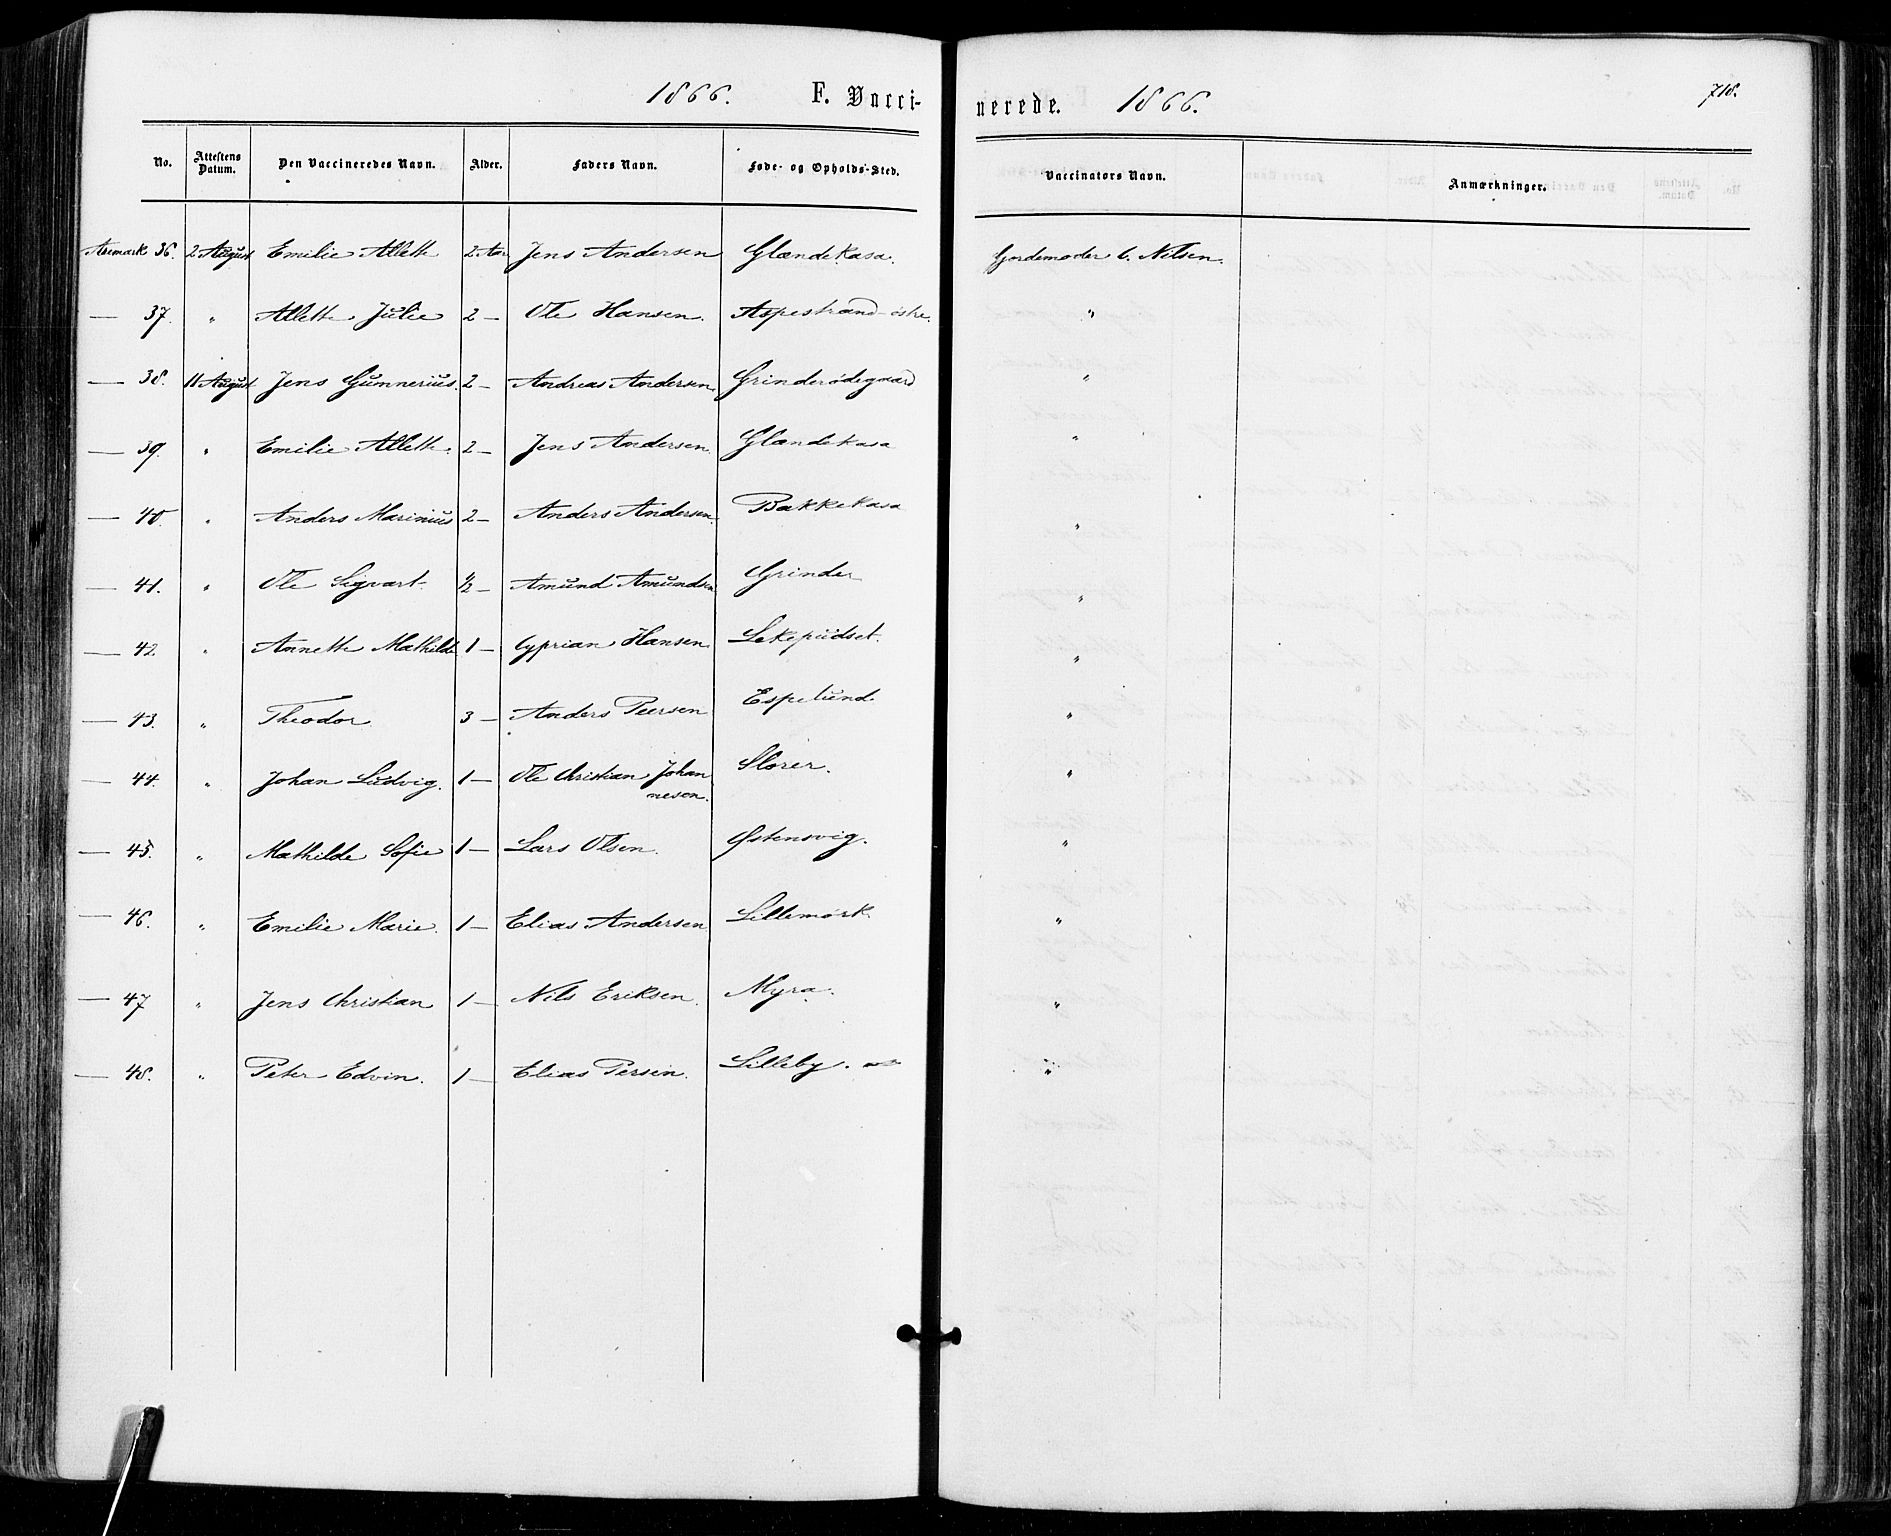 1866. F. Vacci-
nerede. 1866. 718.
No. Attestens Datum. Den Vaccineredes Navn. Alder. Faders Navn. Føde- og Opholds-Sted. Vaccinators Navn. Anmærkninger.
Aremark 36. 2 August Emilie Allette 2 Aar Jens Andersen Glændekasa. Gjordemoder C. Nilsen.
— 37. " Allette Julie 2 — Ole Hansen. Aspestrand østre. "
— 38. 11 August Jens Gumnerius. 2 — Andreas Andersen. Grinderødegaard "
— 39. " Emilie Allette. 2 — Jens Andersen. Glændekasa "
— 40. " Anders Marinius 2 — Anders Andersen. Bakkekasa "
— 41. " Ole Sigvart 1/2 — Amund Amundsen Grinder "
— 42. " Annette Mathilde 1 — Cyprian Hansen. "
— 43. " Theodor 3 — Anders Peersen Espelund "
— 44. " Johan Ludvig. 1 — Ole Christian Johan Slorer. "
nesen.
— 45. " Mathilde Sofie 1 — Lars Olsen. Østensvig. "
— 46. " Emilie Marie. 1 — Elias Andersen Lillemørk. "
— 47 " Jens Christian 1 — Nils Eriksen. Myra. "
— 48. " Peter Edvin. 1 — Elias Persen. Lilleby. "